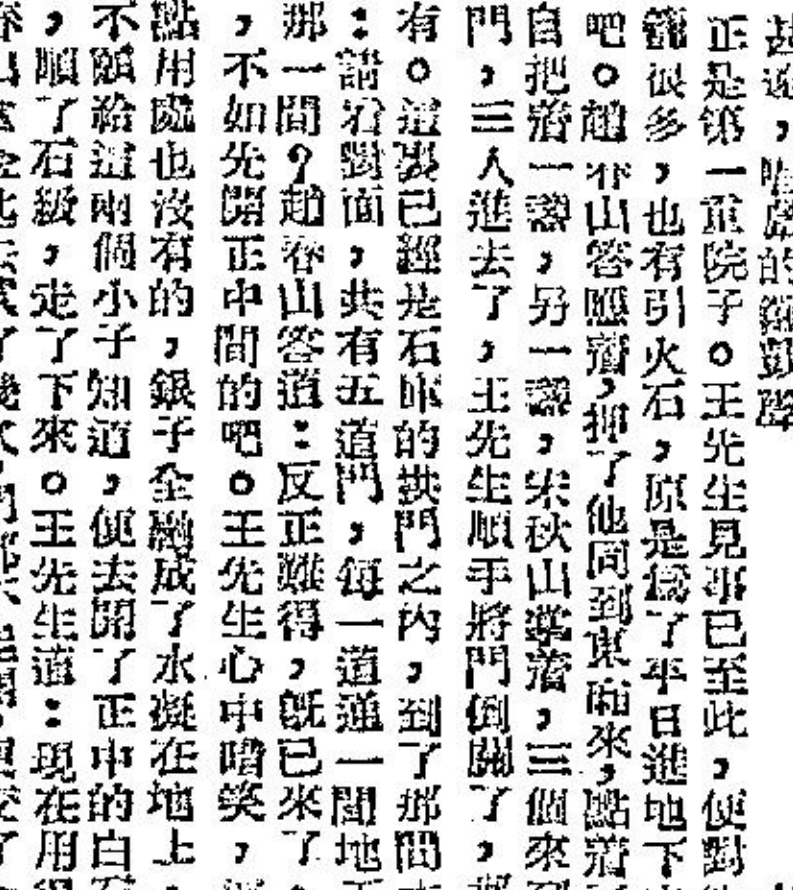 甚遠,唯處的鑼鼓聲
正是第一重院子。王先生見事已至此,便對
籠很多,也有引火石,原是爲了平日進地下
吧。趙春山答應着,押了他同到東廂來,點着
自把着一盞,另一盞,宋秋山拿着,三個來到
門,三人進去了,王先生順手將門倒關了,那
有。這裏已經是石庫的拱門之内,到了那間
:請看對面,共有五道門,每一道通一間地
那一間?趙春山答道:反正難得,既已來了,
,不如先開正中間的吧。王先生心中暗笑,這
點用處也沒有的,銀子全融成了水凝在地上,
不願給這兩個小子知道,便去開了正中的白石
,順了石級,走了下來。王先生道:現在用得